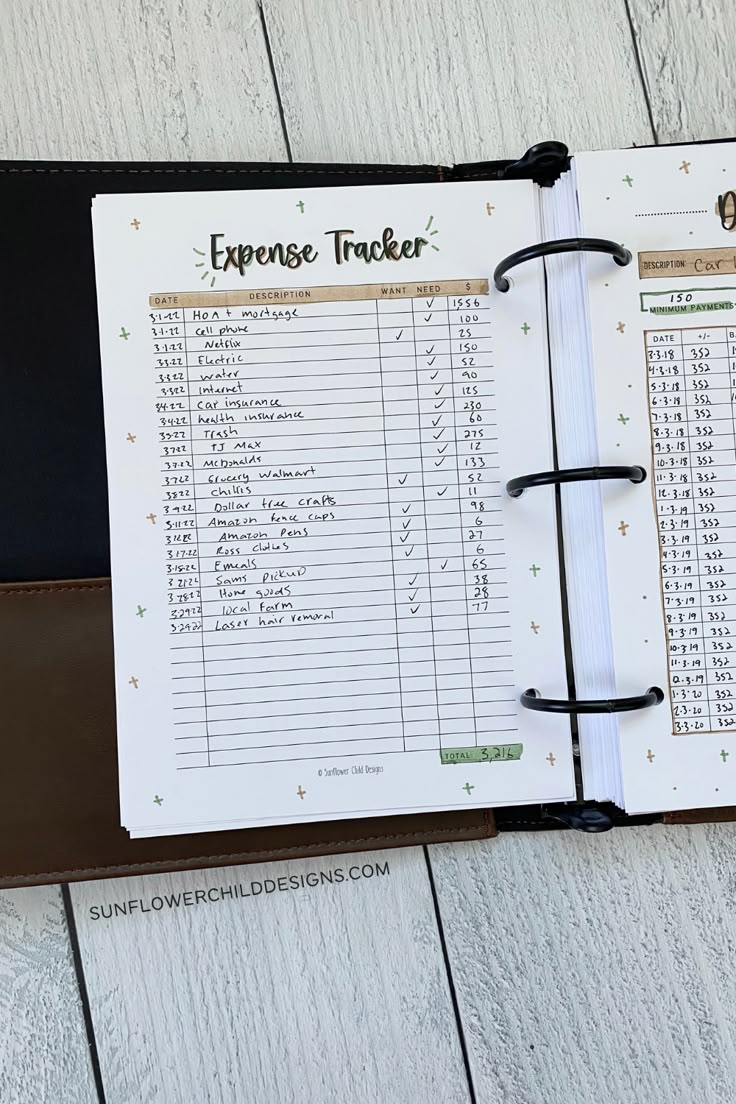 Expense Tracker
DATE DESCRIPTION WANT NEED $
3-1-22 HOA + mortgage ✓ 1556
3-1-22 cell phone ✓ 100
3-1-22 Netflix ✓ 25
3-3-22 Electric ✓ 150
3-3-22 water ✓ 52
3-3-22 Internet ✓ 90
3-4-22 Car insurance ✓ 125
3-4-22 health insurance ✓ 230
3-5-22 Trash ✓ 60
3-7-22 TJ Max ✓ 275
3-7-22 McDonalds ✓ 12
3-7-22 Grocery Walmart ✓ 133
3-8-22 Chilis ✓ 52
3-9-22 Dollar tree crafts ✓ 11
3-11-22 Amazon fence caps ✓ 98
Amazon Pens ✓ 6
3-17-22 Ross clothes ✓ 27
3-18-22 Emeals ✓ 6
3-21-22 Sams Pickup ✓ 65
3-28-22 Home goods ✓ 38
3-29-22 local farm ✓ 28
3-29-22 Laser hair removal ✓ 77
TOTAL: 3,216
© Sunflower Child Designs
DESCRIPTION Car
150
MINIMUM PAYMENTS
DATE +/-
3.3.18 352
4.3.18 352
5.3.18 352
6.3.18 352
7.3.18 352
8.3.18 352
9.3.18 352
10.3.18 352
11.3.18 352
12.3.18 352
1.3.19 352
2.3.19 352
3.3.19 352
4.3.19 352
5.3.19 352
6.3.19 352
7.3.19 352
8.3.19 352
9.3.19 352
10.3.19 352
11.3.19 352
12.3.19 352
1.3.20 352
2.3.20 352
3.3.20 352
SUNFLOWERCHILDDESIGNS.COM